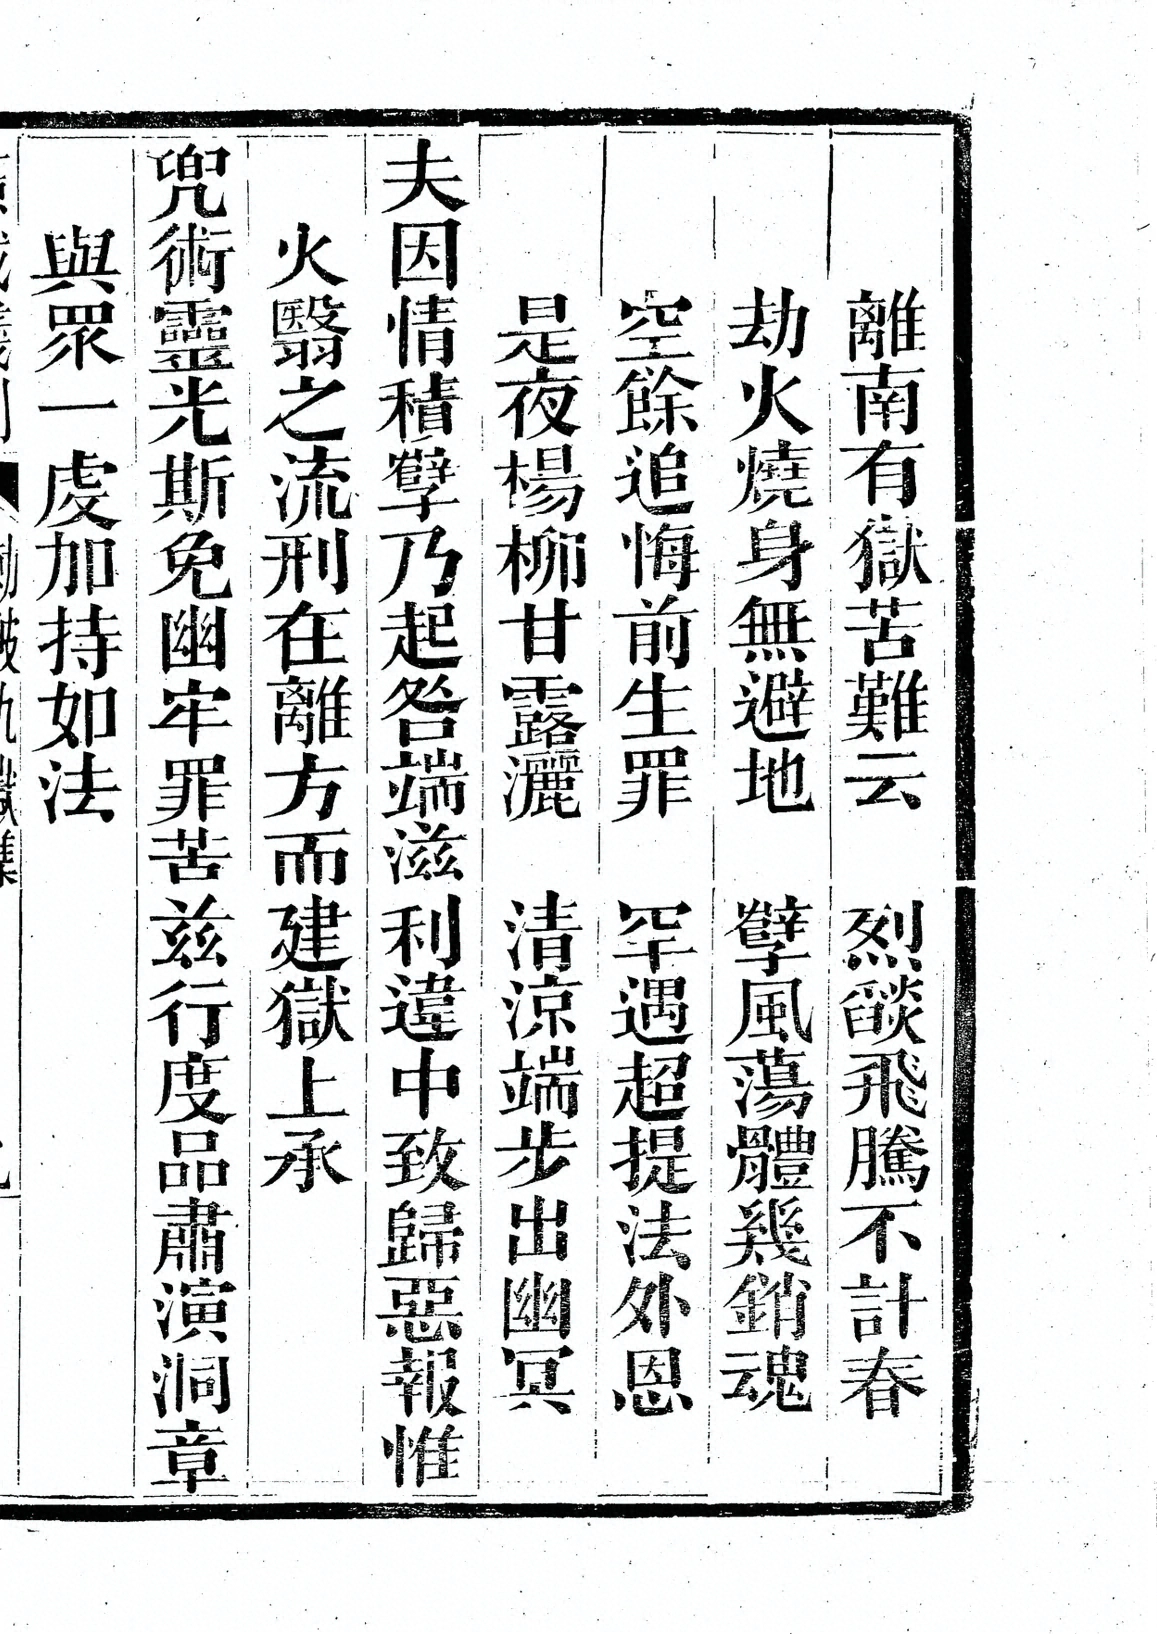 離南有獄苦難云　烈燄飛騰不計春
劫火燒身無避地　孽風蕩體幾銷魂
空餘追悔前生罪　罕遇超提法外恩
是夜楊柳甘露灑　清涼端步出幽冥
夫因情積孽乃起咎端滋利違中致歸惡報惟
火翳之流刑在離方而建獄上承
兜術靈光斯免幽牢罪苦茲行度品肅演洞章
與眾一處加持如法